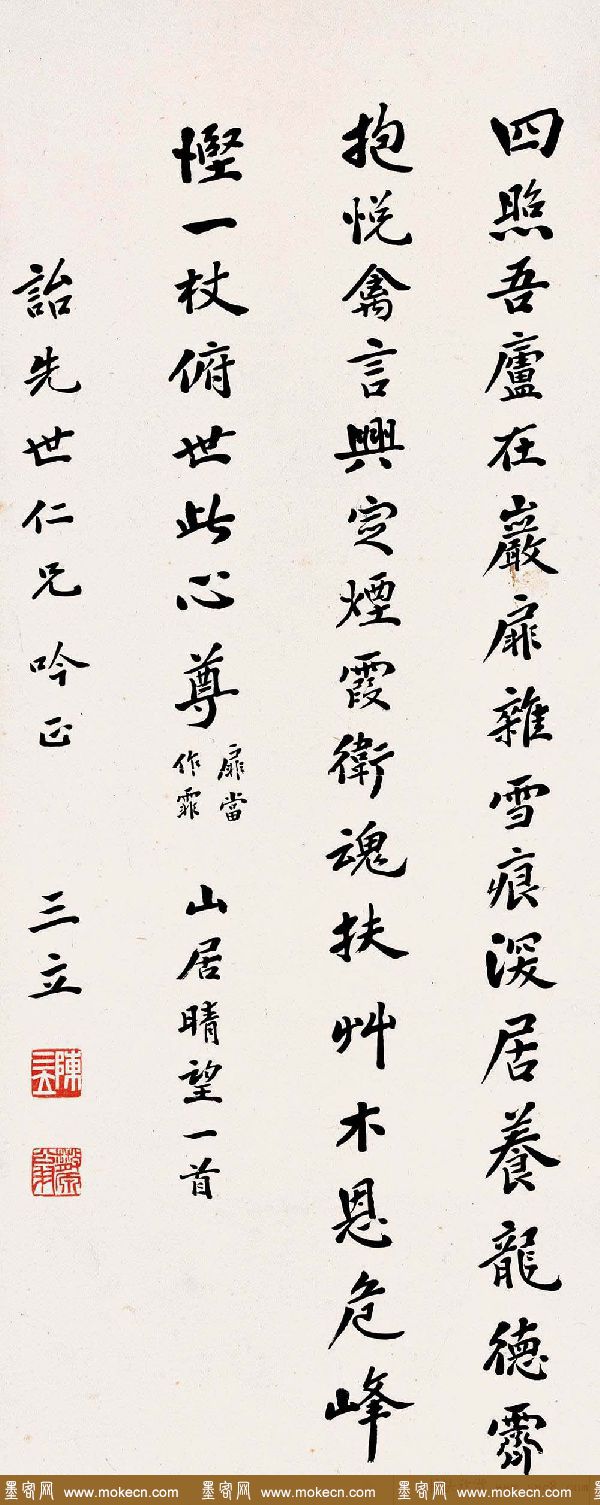 四照吾廬在巖扉雜雪痕深居養龍德霽
抱悅禽言興定煙霞衛魂扶艸木恩危峰
慳一杖俯世此心尊
扉當
作霏
山居晴望一首
詒先世仁兄吟正
三立
陳三立
墨客网 www.mokecn.com 墨客网 www.mokecn.com 墨客网 www.mokecn.com